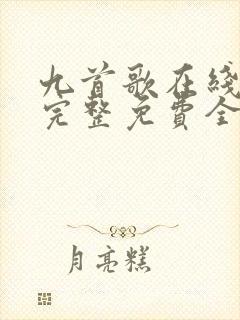 九首歌在綫
完整免費全
月亮糕